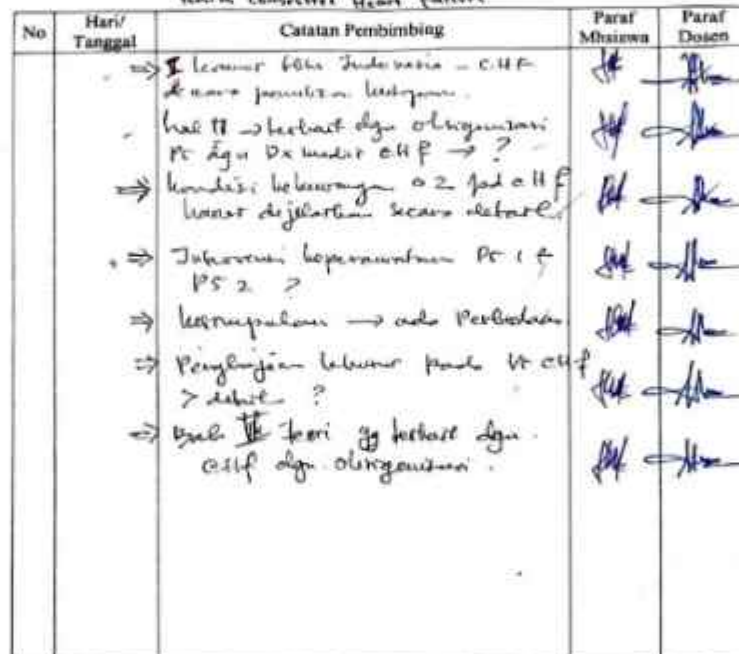 Congestive Heart Failure
No Hari/Tanggal Catatan Pembimbing Paraf Mhsiswa Paraf Dosen
⇒ Indonesia – CHF
cara penulisan kutipan.
hal 11 → terkait dgn oksigenisasi
Ps dgn Dx medis CHF → ?
⇒ kondisi kekurangan O2 pad CHF
harus dijelaskan secara detail
⇒ Intervensi keperawatan Ps 1 &
PS 2 ?
⇒ kesimpulan → ada Perbedaan
⇒ Pengkajian khusus pada Ps CHF
> detail ?
⇒ Bab II teori yg terkait dgn
CHF dgn oksigenisasi.